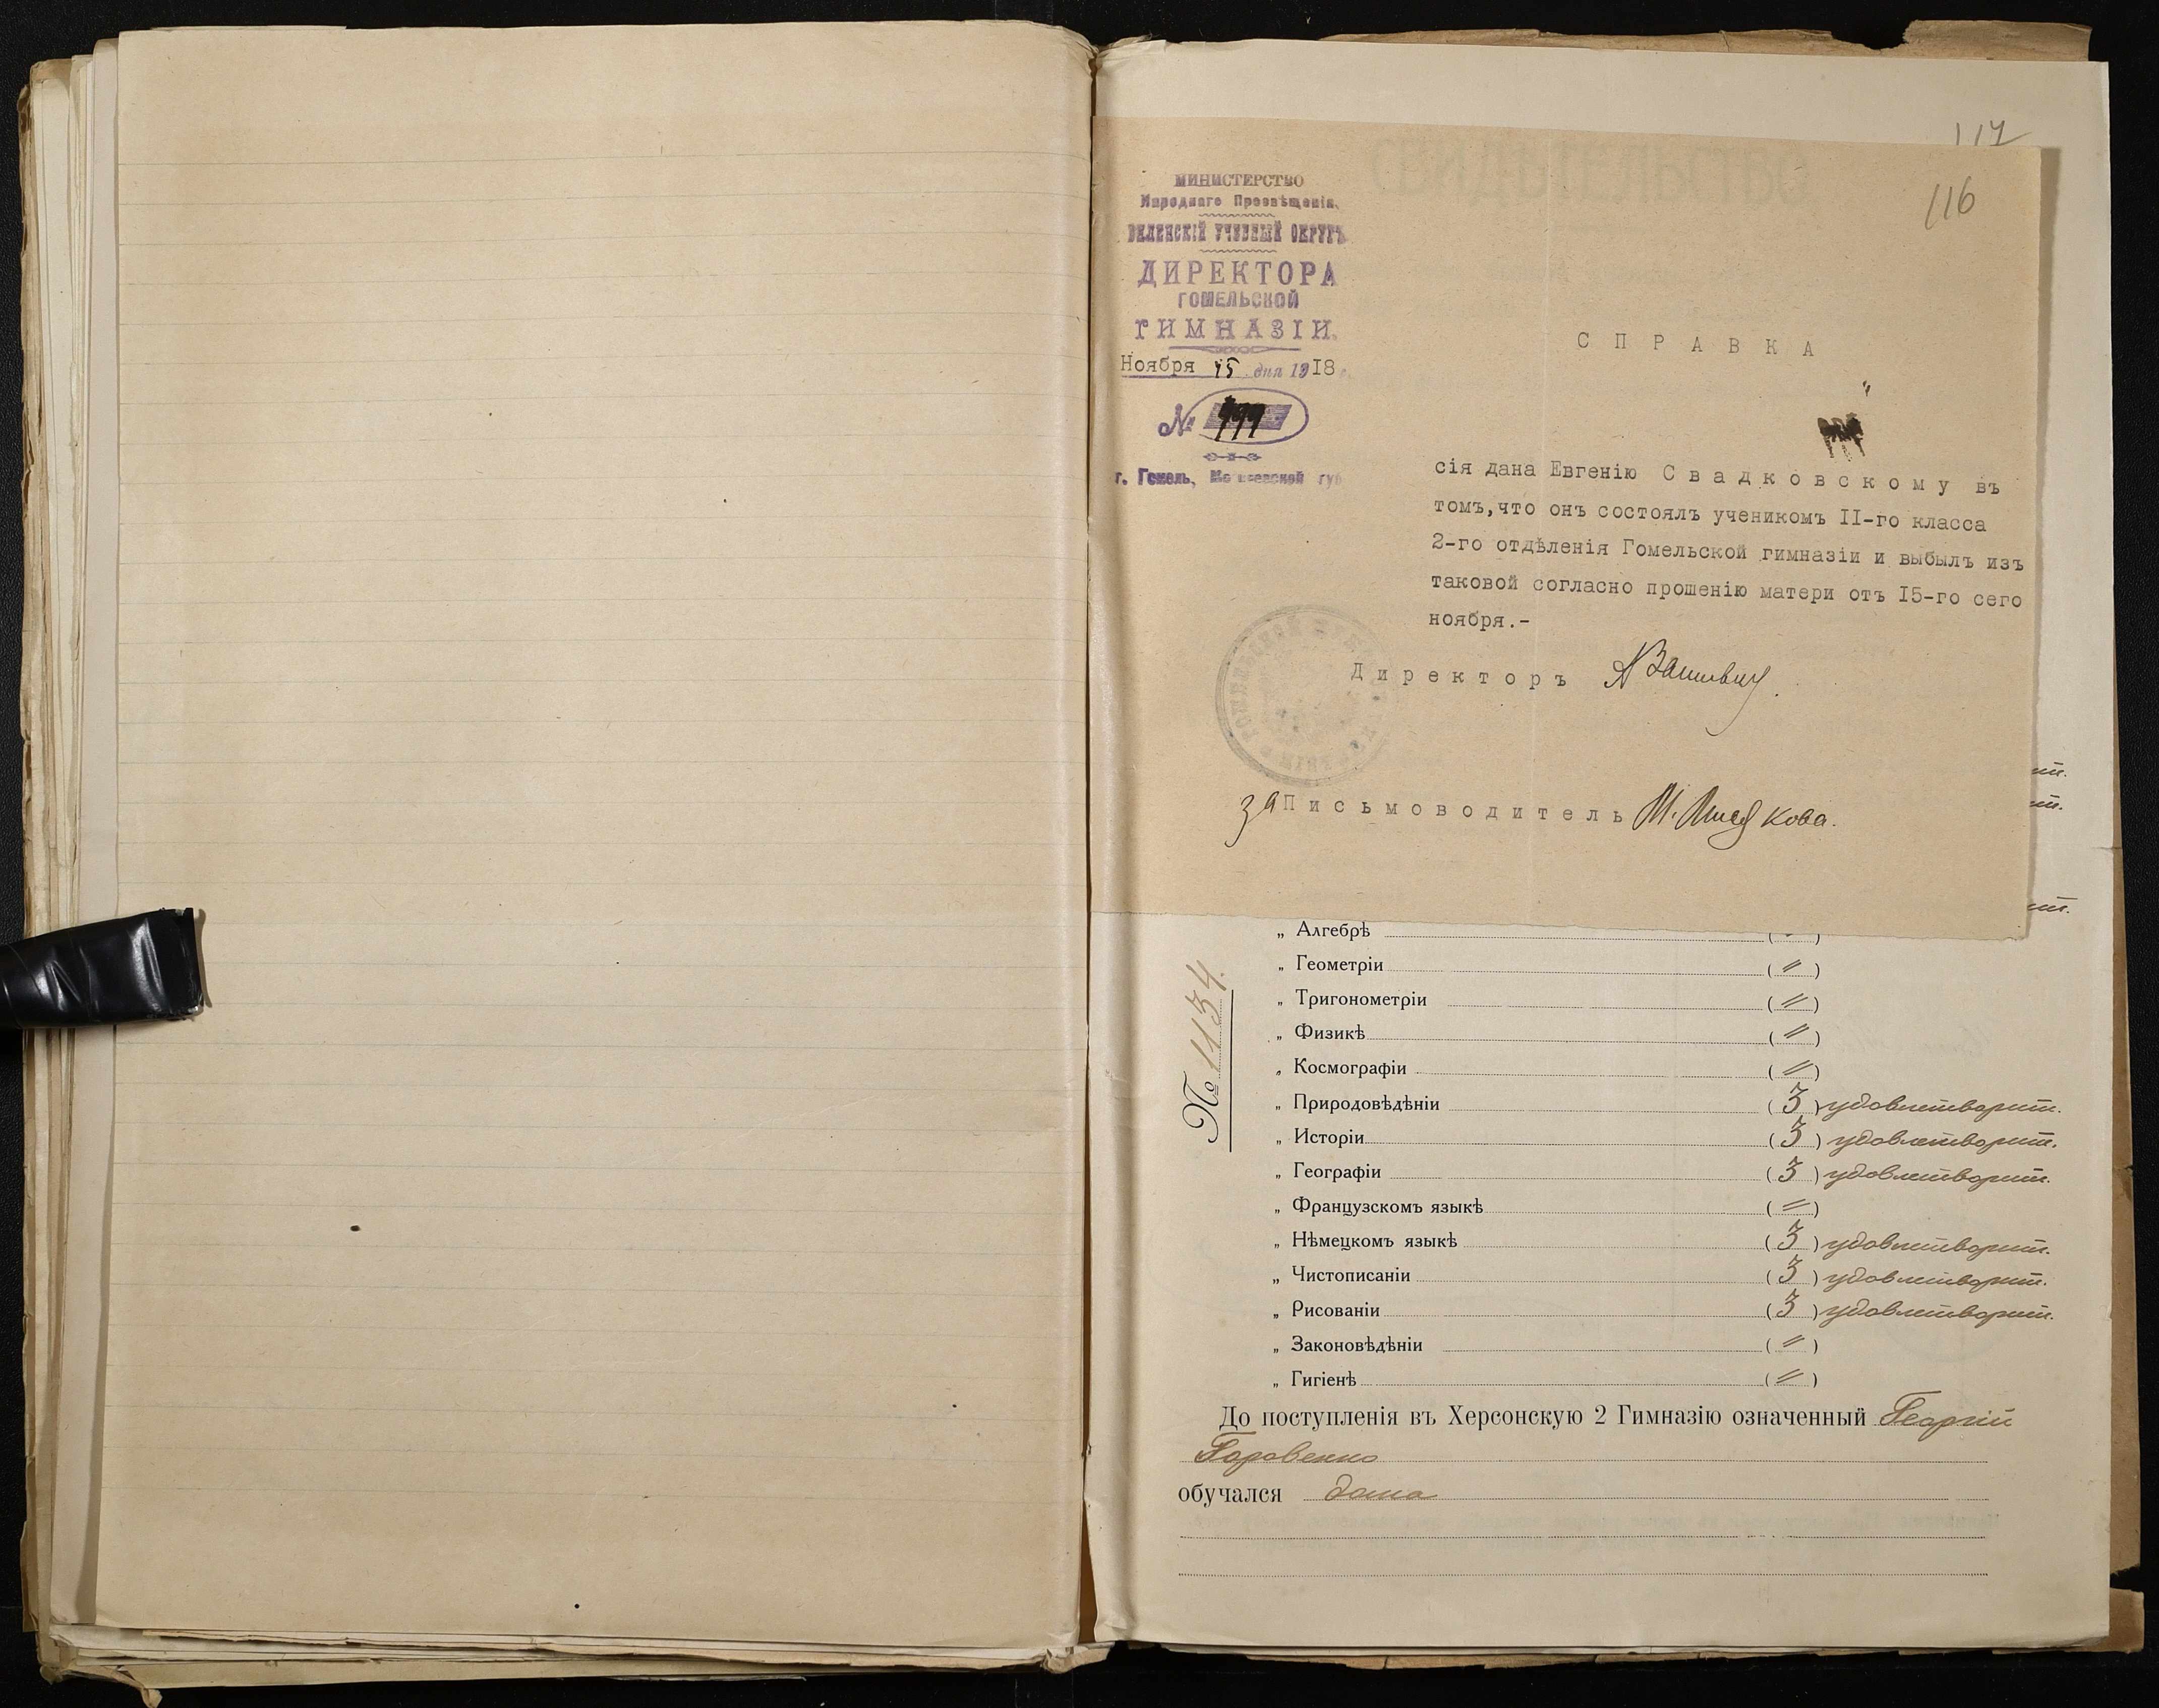 117
116
МИНИСТЕРСТВО
Народнаго Просвѣщенія.
ВИЛЕНСКІЙ УЧЕБНЫЙ ОКРУГЪ
ДИРЕКТОРА
ГОМЕЛЬСКОЙ
ГИМНАЗІИ.
Ноября 15 дня 1918
№
г. Гомель, Могилевской губ
СПРАВКА
сія дана Евгенію Свадковскому въ
томъ,что онъ состоялъ ученикомъ II-го класса
2-го отдѣленія Гомельской гимназіи и выбылъ изъ
таковой согласно прошенію матери отъ I5-го сего
ноября.-
Директоръ
за Письмоводитель
№ 1134.
„ Алгебрѣ
„ Геометріи ( „ )
„ Тригонометріи ( „ )
„ Физикѣ ( „ )
„ Космографіи ( „ )
„ Природовѣдѣніи ( 3 ) удовлетворит.
„ Исторіи ( 3 ) удовлетворит.
„ Географіи ( 3 ) удовлетворит.
„ Французскомъ языкѣ ( „ )
„ Нѣмецкомъ языкѣ ( 3 ) удовлетворит.
„ Чистописаніи ( 3 ) удовлетворит.
„ Рисованіи ( 3 ) удовлетворит.
„ Законовѣдѣніи ( „ )
„ Гигіенѣ ( „ )
До поступленія въ Херсонскую 2 Гимназію означенный Георгій
обучался дома